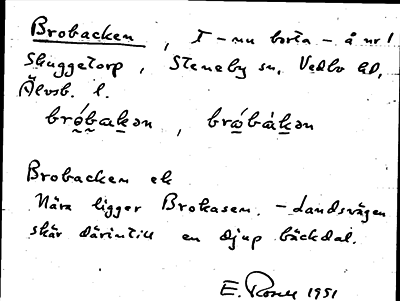 Brobacken, T - nu borta - å nr 1
Skuggetorp, Steneby sn, Vedbo hd,
Älvsb. l.
bró̰ba̰ḵən, brώ̱bàḵən
Brobacken ek
Nära ligger Brokasen. - Landsvägen
skär därintill en djup bäckdal.
E. 1951